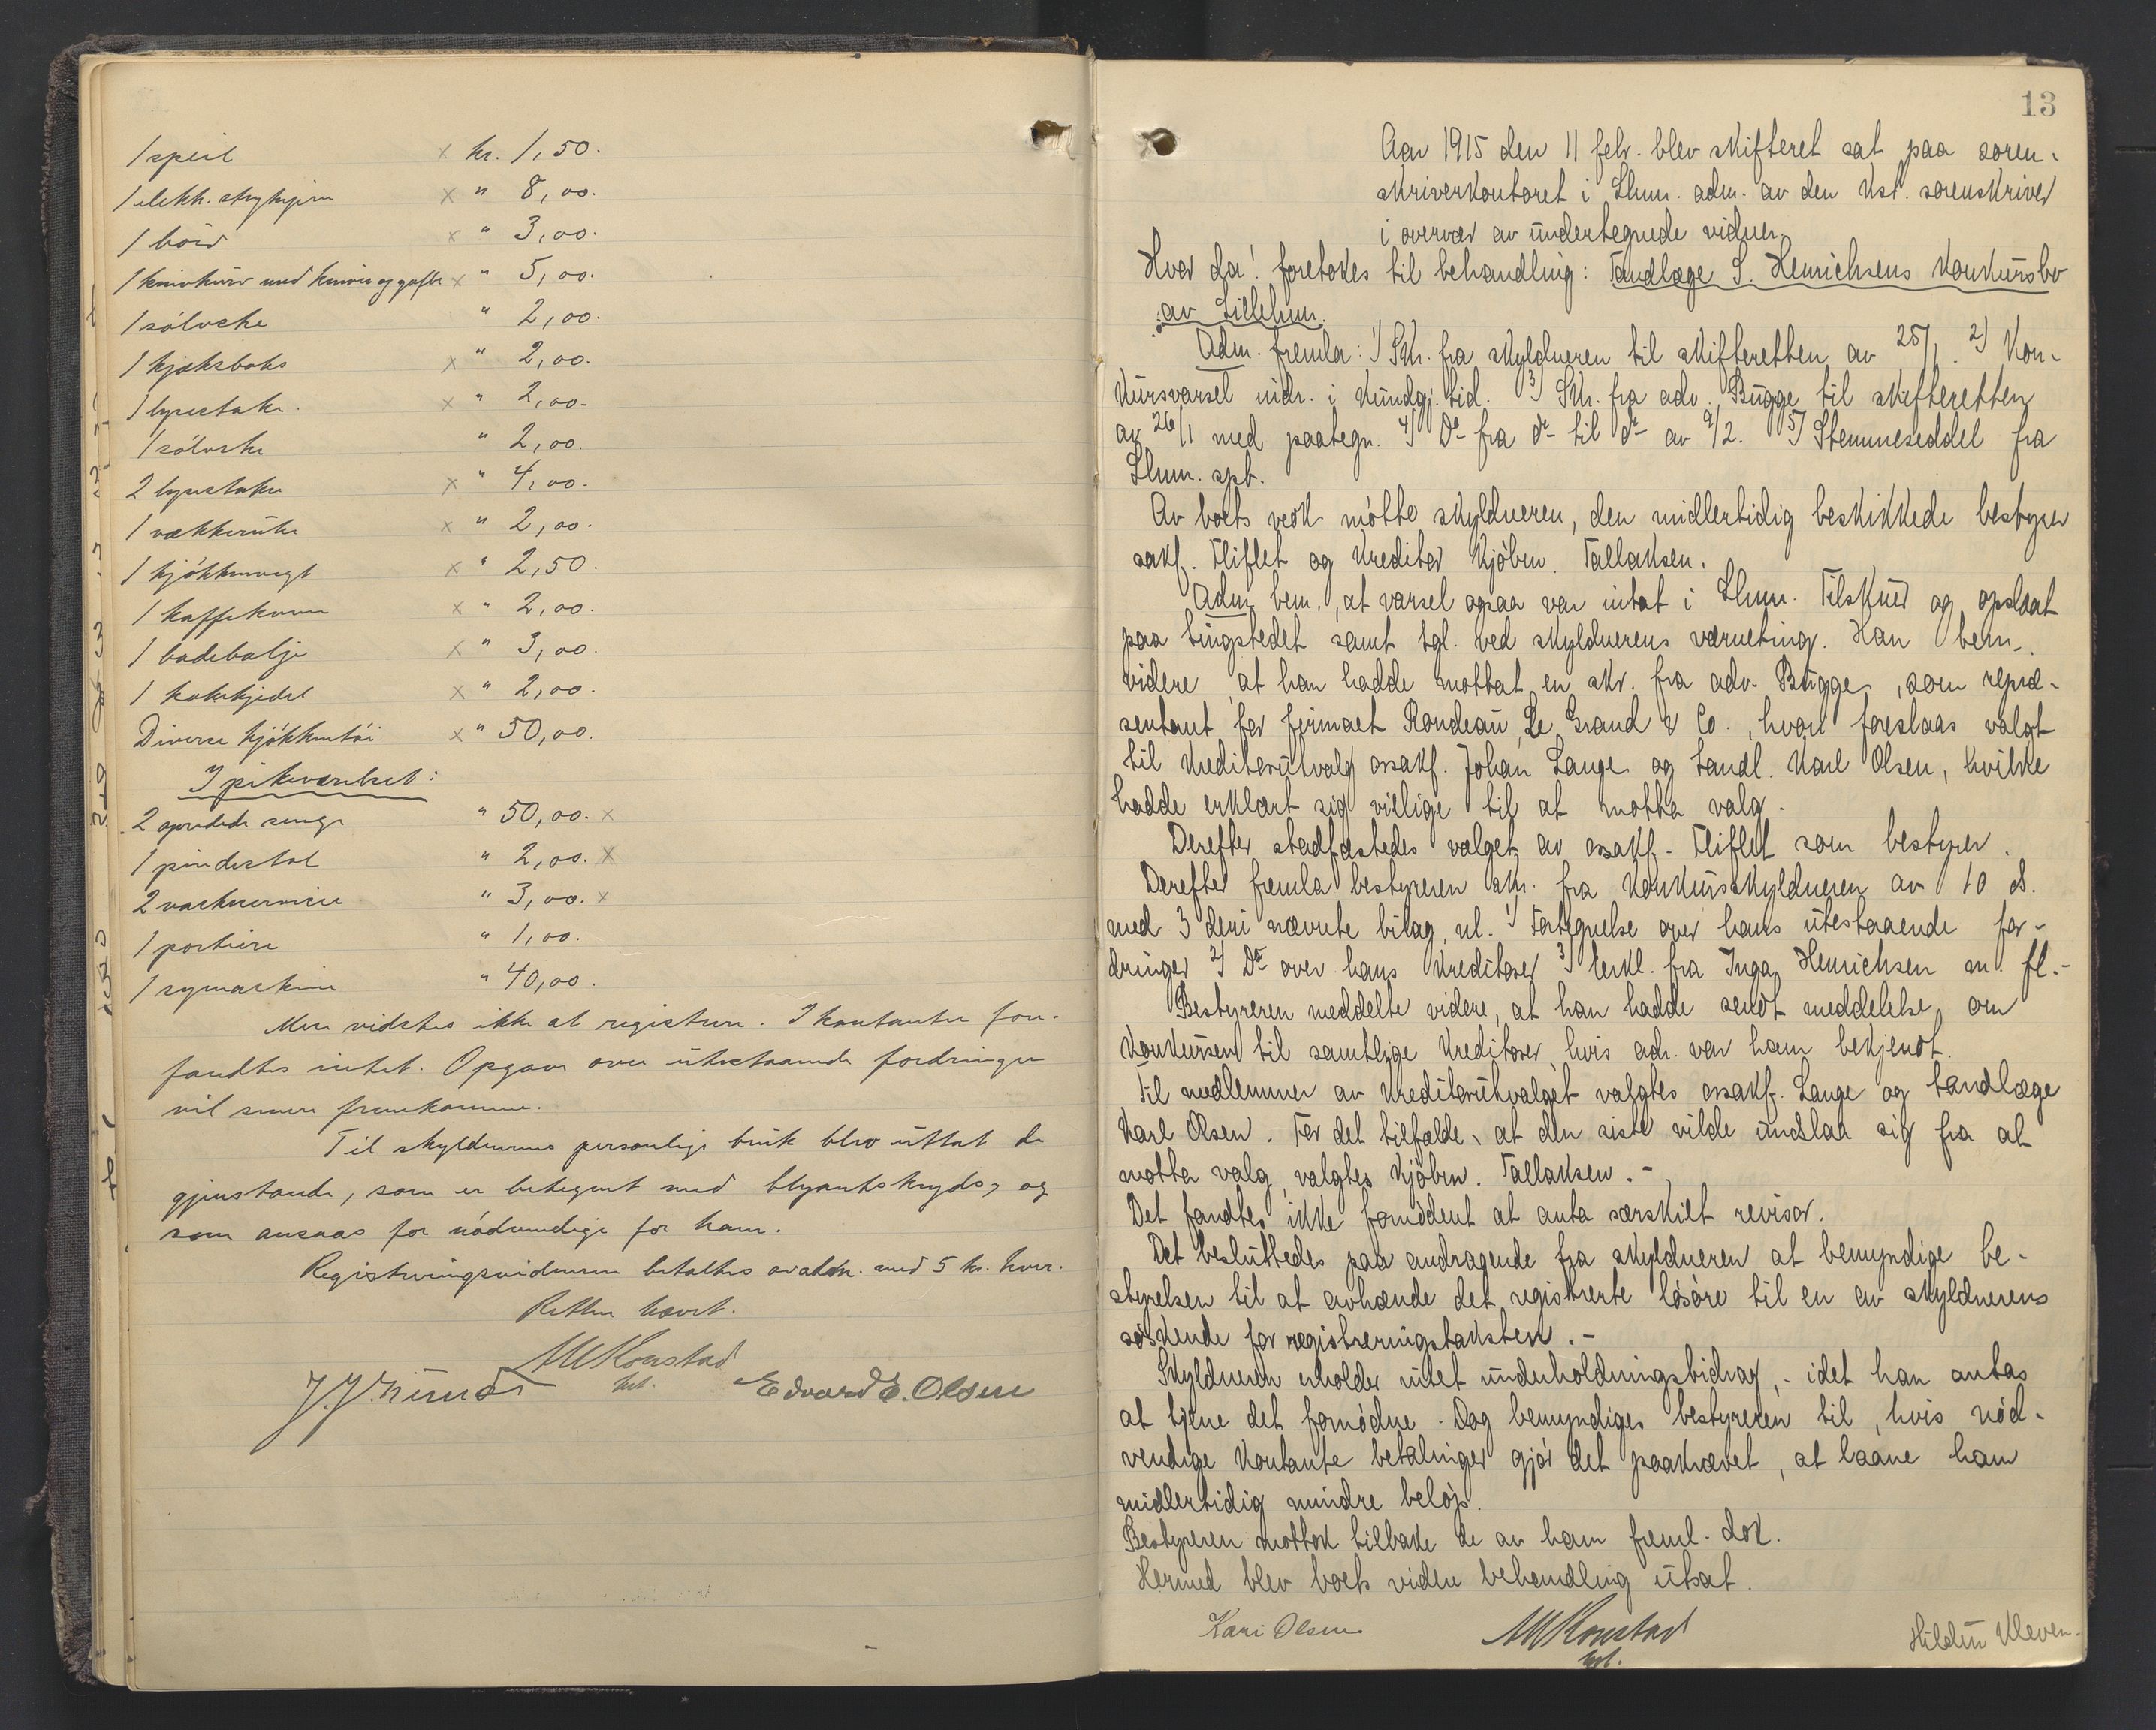 1 speil × kr. 1,50.
1 elektr. strykejern × " 8,00.
1 bord × " 3,00.
1 knivkurv med kniver og gafler × " 5,00.
1 sølvske " 2,00.
1 kjæksboks × " 2,00.
1 lysestake. × " 2,00.
1 sølvske " 2,00.
2 lysestaker × " 4,00.
1 vækkerur × " 2,00.
1 kjøkkenvegt × " 2,50.
1 kaffekvern × " 2,00.
1 badebalje × " 3,00.
1 kokekjedel × " 2,00.
Diverse kjøkkentøi × " 50,00.
I pikeværelset:
2 opredede senge " 50,00. ×
1 pindestol " 2,00. ×
2 vaskeservicer " 3,00. ×
1 portiere " 1,00.
1 symaskine " 40,00.
Mere vidstes ikke at registrere. I kontanter fore-
fandtes intet. Opgave over utestaaende fordringer
vil senere fremkomme.
Til skyldnerens personlige bruk blev uttat de
gjenstande, som er betegnet med blyantskryds, og
som ansaas for nødvendige for ham.
Registreringsvidnerne betaltes av adm. med 5 kr. hver.
Retten hævet.
AW Konstad
kst.
Edvard E. Olsen
13
Aar 1915 den 11 febr. blev skifteret sat paa soren-
skriverkontoret i Lhmr. adm. av den kst. sorenskriver
i overvær av undertegnede vidner.
Hvor da! foretokes til behandling: Tandlæge S. Henrichsens konkursbo
av Lillehmr.
Adm. fremla: 1) Skr. fra skyldneren til skifteretten av 25/1. 2) Kon-
kursvarsel indr. i Kundgj. tid. 3) Skr. fra adv. Bugge til skifteretten
av 26/1 med paategn. 4) Do fra do til do av 9/2. 5) Stemmeseddel fra
Lhmr. spb.
Av boets vedk. møtte skyldneren, den midlertidig beskikkede bestyrer
sakf. Fliflet og kreditor kjøbm. Tallaksen.
Adm. bem., at varsel ogsaa var inntat i Lhmr. Tilskuer og opslaat
paa tingstedet samt tgl. ved skyldnerens værneting. Han bem.
videre at han hadde mottat en skr. fra adv. Bugge, som repræ-
sentant for firmaet Rondeau, Le Grand & Co., hvori foreslaas valgt
til kreditorutvalg orsakf. Johan Lange og tandl. Karl Olsen, hvilke
hadde erklært sig villige til at motta valg.
Derefter stadfæstedes valget av orsakf. Fliflet som bestyrer.
Derefter fremla bestyreren skr. fra konkursskyldneren av 10 ds.
med 3 deri nævnte bilag, nl. 1) Fortegnelse over hans utestaaende for-
dringer 2) Do over hans kreditorer 3) Erkl. fra Inga Henrichsen m. fl.-
Bestyreren meddelte videre, at han hadde sendt meddelelse om
konkursen til samtlige kreditorer, hvis adr. var ham bekjendt.
Til medlemmer av kreditorutvalget valgtes orsakf. Lange og tandlæge
Karl Olsen. For det tilfælde, at den siste vilde undslaa sig fra at
motta valg, valgtes kjøbm. Tallaksen.-
Det fandtes ikke fornødent at anta særskilt revisor.
Det besluttedes paa andragende fra skyldneren at bemyndige be-
styrelsen til at avhænde det registrerte løsøre til en av skyldnerens
søskende for registreringstaksten.-
Skyldneren erholder intet underholdningsbidrag,- idet han antas
at tjene det fornødne. Dog bemyndiges bestyreren til, hvis nød-
vendige kontante betalinger gjør det paakrævet, at laane ham
midlertidig mindre beløp.
Bestyreren mottok tilbake de av ham freml. dok.
Hermed blev boets videre behandling utsat.
Kari Olsen AW Konstad Hildur Kleven.
kst.